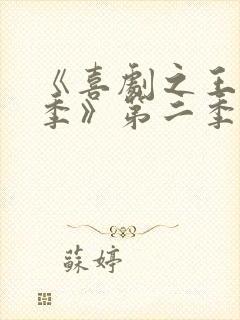 《喜劇之王
季》第二季
蘇婷